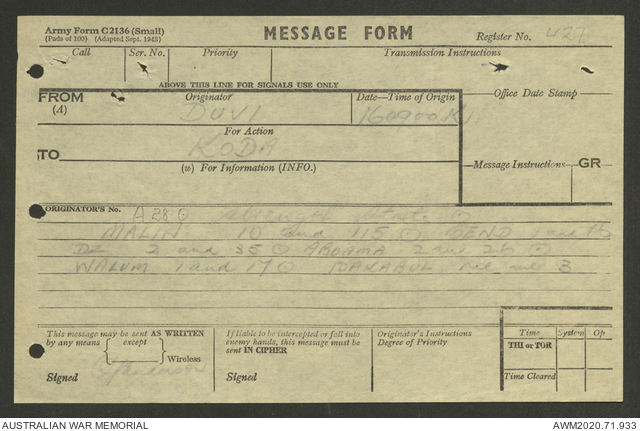 Army Form C2136 (Small)
(Pads of 100) (Adapted Sept. 1943)
MESSAGE FORM
Register No. 427
Call
Ser. No.
Priority
Transmission Instructions
ABOVE THIS LINE FOR SIGNALS USE ONLY
FROM
(A)
Originator
DUVI
Date—Time of Origin
160900K
Office Date Stamp
For Action
TO
KODA
(w) For Information (INFO.)
Message Instructions
GR
ORIGINATOR'S No.
A 28 ⊙ strength state ⊙
MALIN 10 and 115 ⊙ 1 and
DZ 2 and 35 ⊙ ABDAMA 2 26 ⊙
1 and 17 ⊙ 3
This message may be sent AS WRITTEN
by any means except
Wireless
Signed
If liable to be intercepted or fall into
enemy hands, this message must be
sent IN CIPHER
Signed
Originator's Instructions
Degree of Priority
Time
System
Op
THI or TOR
Time Cleared
AUSTRALIAN WAR MEMORIAL
AWM2020.71.933